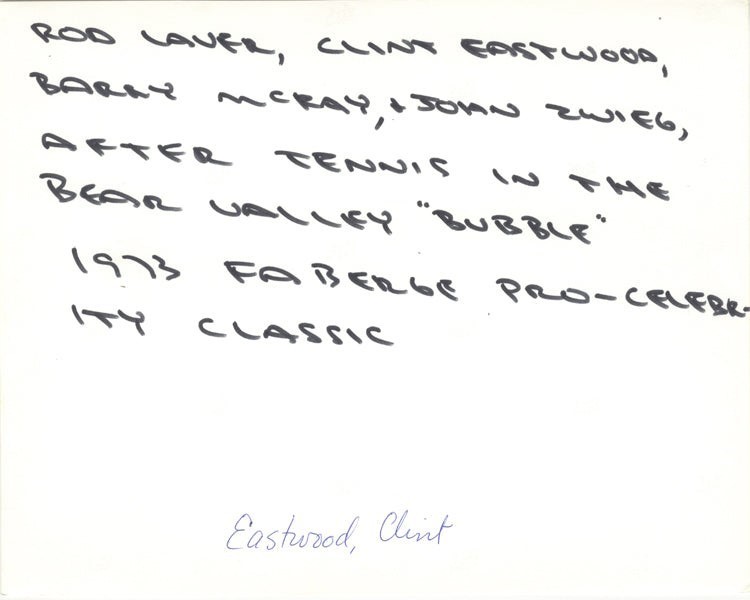 ROD LAVER, CLINT EASTWOOD,
BARRY MCKAY, + JOHN ZWIEG,
AFTER TENNIS IN THE
BEAR VALLEY "BUBBLE"
1973 FABERGE PRO-CELEBR-
ITY CLASSIC
Eastwood, Clint